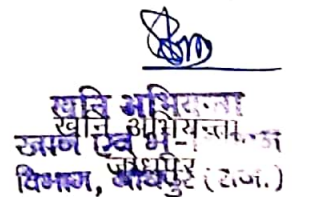 खनि अभियन्ता
खनि अभियन्ता
खान एवं भू-
जोधपुर
विभाग, जोधपुर (राज.)